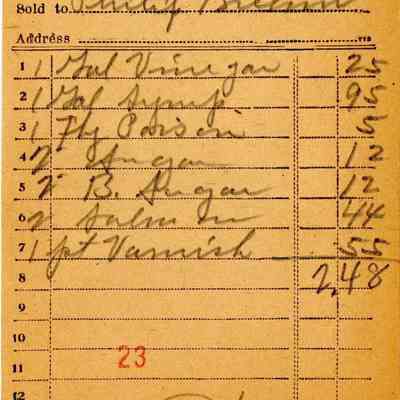 Sold to Philip
Address
1 1 Gal Vinegar 25
2 1 Gal Syrup 95
3 1 Fly Poison 5
4 2 Sugar 12
5 2 B. Sugar 12
6 2 Salmon 44
7 1 pt Varnish 55
8 2,48
9
10
11 23
12